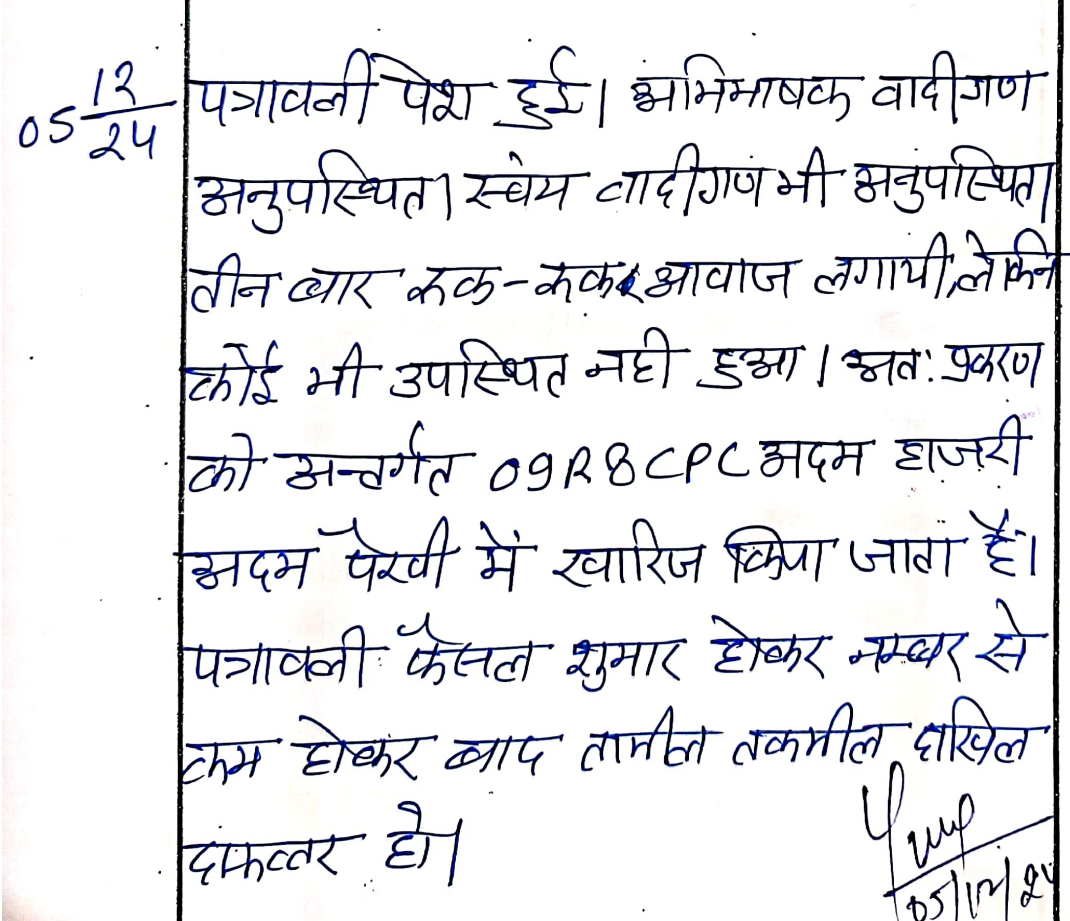 05 12/24 पत्रावली पेश हुई। अभिभाषक वादीगण
अनुपस्थित। स्वंय वादीगण भी अनुपस्थित।
तीन बार रूक-रूककर आवाज लगायी, लेकिन
कोई भी उपस्थित नही हुआ। अत: प्रकरण
को अन्तर्गत 09R8CPC अदम हाज़री
अदम पैरवी में खारिज किया जाता हैं।
पत्रावली फैसल शुमार होकर नम्बर से
कम होकर बाद तामील तकमील दाखिल
दफ्तर हो।
05/12/24